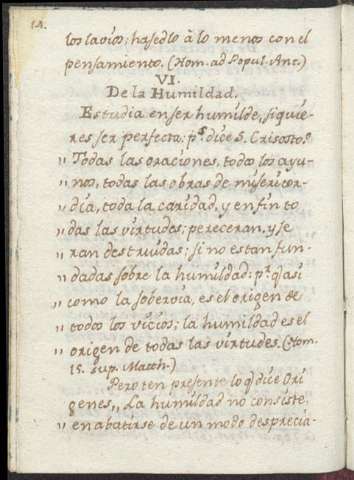 14.
los lavíos; hasedlo à lo menos con el
pensamiento. (Hom. ad Popul. Ant.)
VI.
De la Humildad.
Estudia en ser humilde, si quie-
res ser perfecto; ps. dice S. Crisosto.
„ Todas las oraciones, todos los ayu-
„ nos, todas las obras de misericor-
„ dia, toda la caridad, y en fin to
„ das las virtudes; pereceran, y se
„ ran destruidas; si no estan fun-
„ dadas sobre la humildad: pr. q. asi
„ como la soberbia, es el origen de
„ todos los vicios; la humildad es el
„ origen de todas las virtudes. (Hom.
15. sup. Matth.)
Pero ten presente lo q. dice Ori
genes „ La humildad no consiste,
„ en abatirse de un modo desprecia-